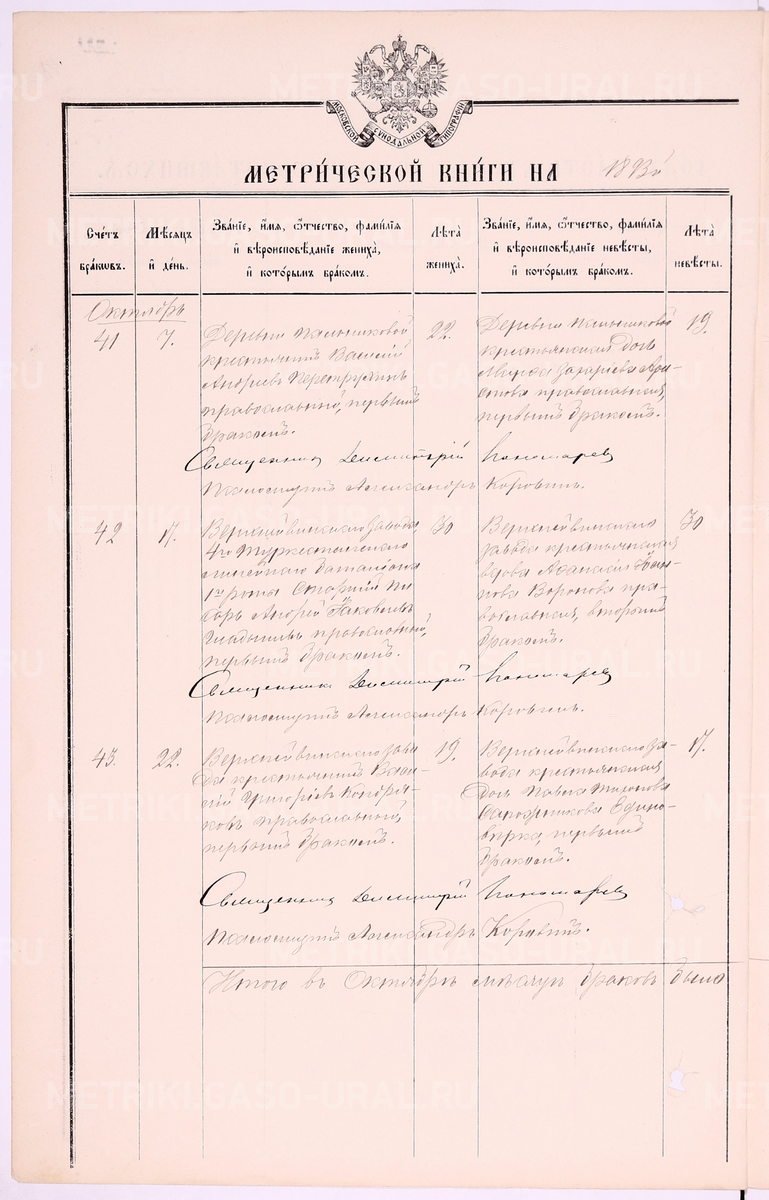 МОСКОВСКОЙ СѴНОДАЛЬНОЙ ТИПОГРАФІИ
МЕТРИ́ЧЕСКОЙ КНИ́ГИ НА 1893 й
Сче́тъ бра́кѡвъ.
Мѣ́сяцъ и҆ де́нь.
Зва́нїе, и҆́мѧ, ѻ҆́тчество, фами́лїѧ
и҆ вѣроисповѣ́данїе жениха̀,
и҆ кото́рымъ бра́комъ.
Лѣ́та жениха̀.
Зва́нїе, и҆́мѧ, ѻ҆́тчество, фами́лїѧ
и҆ вѣроисповѣ́данїе невѣ́сты,
и҆ кото́рымъ бра́комъ.
Лѣ́та невѣ́сты.
Октябрь
41
7.
Деревни Пальниковой
крестьянинъ Василій
Андреевъ
православный, первымъ
бракомъ.
22.
Деревни Пальниковой
крестьянская дочь
Захаріева
православная,
первымъ бракомъ.
19.
Священникъ Димитрій Пономарев
Псаломщикъ Александръ Коровинъ.
42
17.
Верхнейвинскаго завода,
4го Туркестанскаго
линейнаго баталіона
1й роты Старшій
Андрей Яковлевъ
православный,
первымъ бракомъ.
30
Верхнейвинскаго
завода крестьянская
вдова
Воронова пра-
вославная, вторымъ
бракомъ.
30
Священникъ Димитрій Пономарев
Псаломщикъ Александръ Коровинъ.
43.
22.
Верхнейвинскаго заво-
да крестьянинъ Васи-
лій Григорьевъ Кондра-
ковъ православный,
первымъ бракомъ.
19.
Верхнейвинскаго за-
вода крестьянская
дочь
Сапожникова Едино-
вѣрка, первымъ
бракомъ.
17.
Священникъ Димитрій Пономарев
Псаломщикъ Александръ Коровинъ.
Итого въ Октябрѣ мѣсяцѣ браковъ было
METRIKI.GASO-URAL.RU